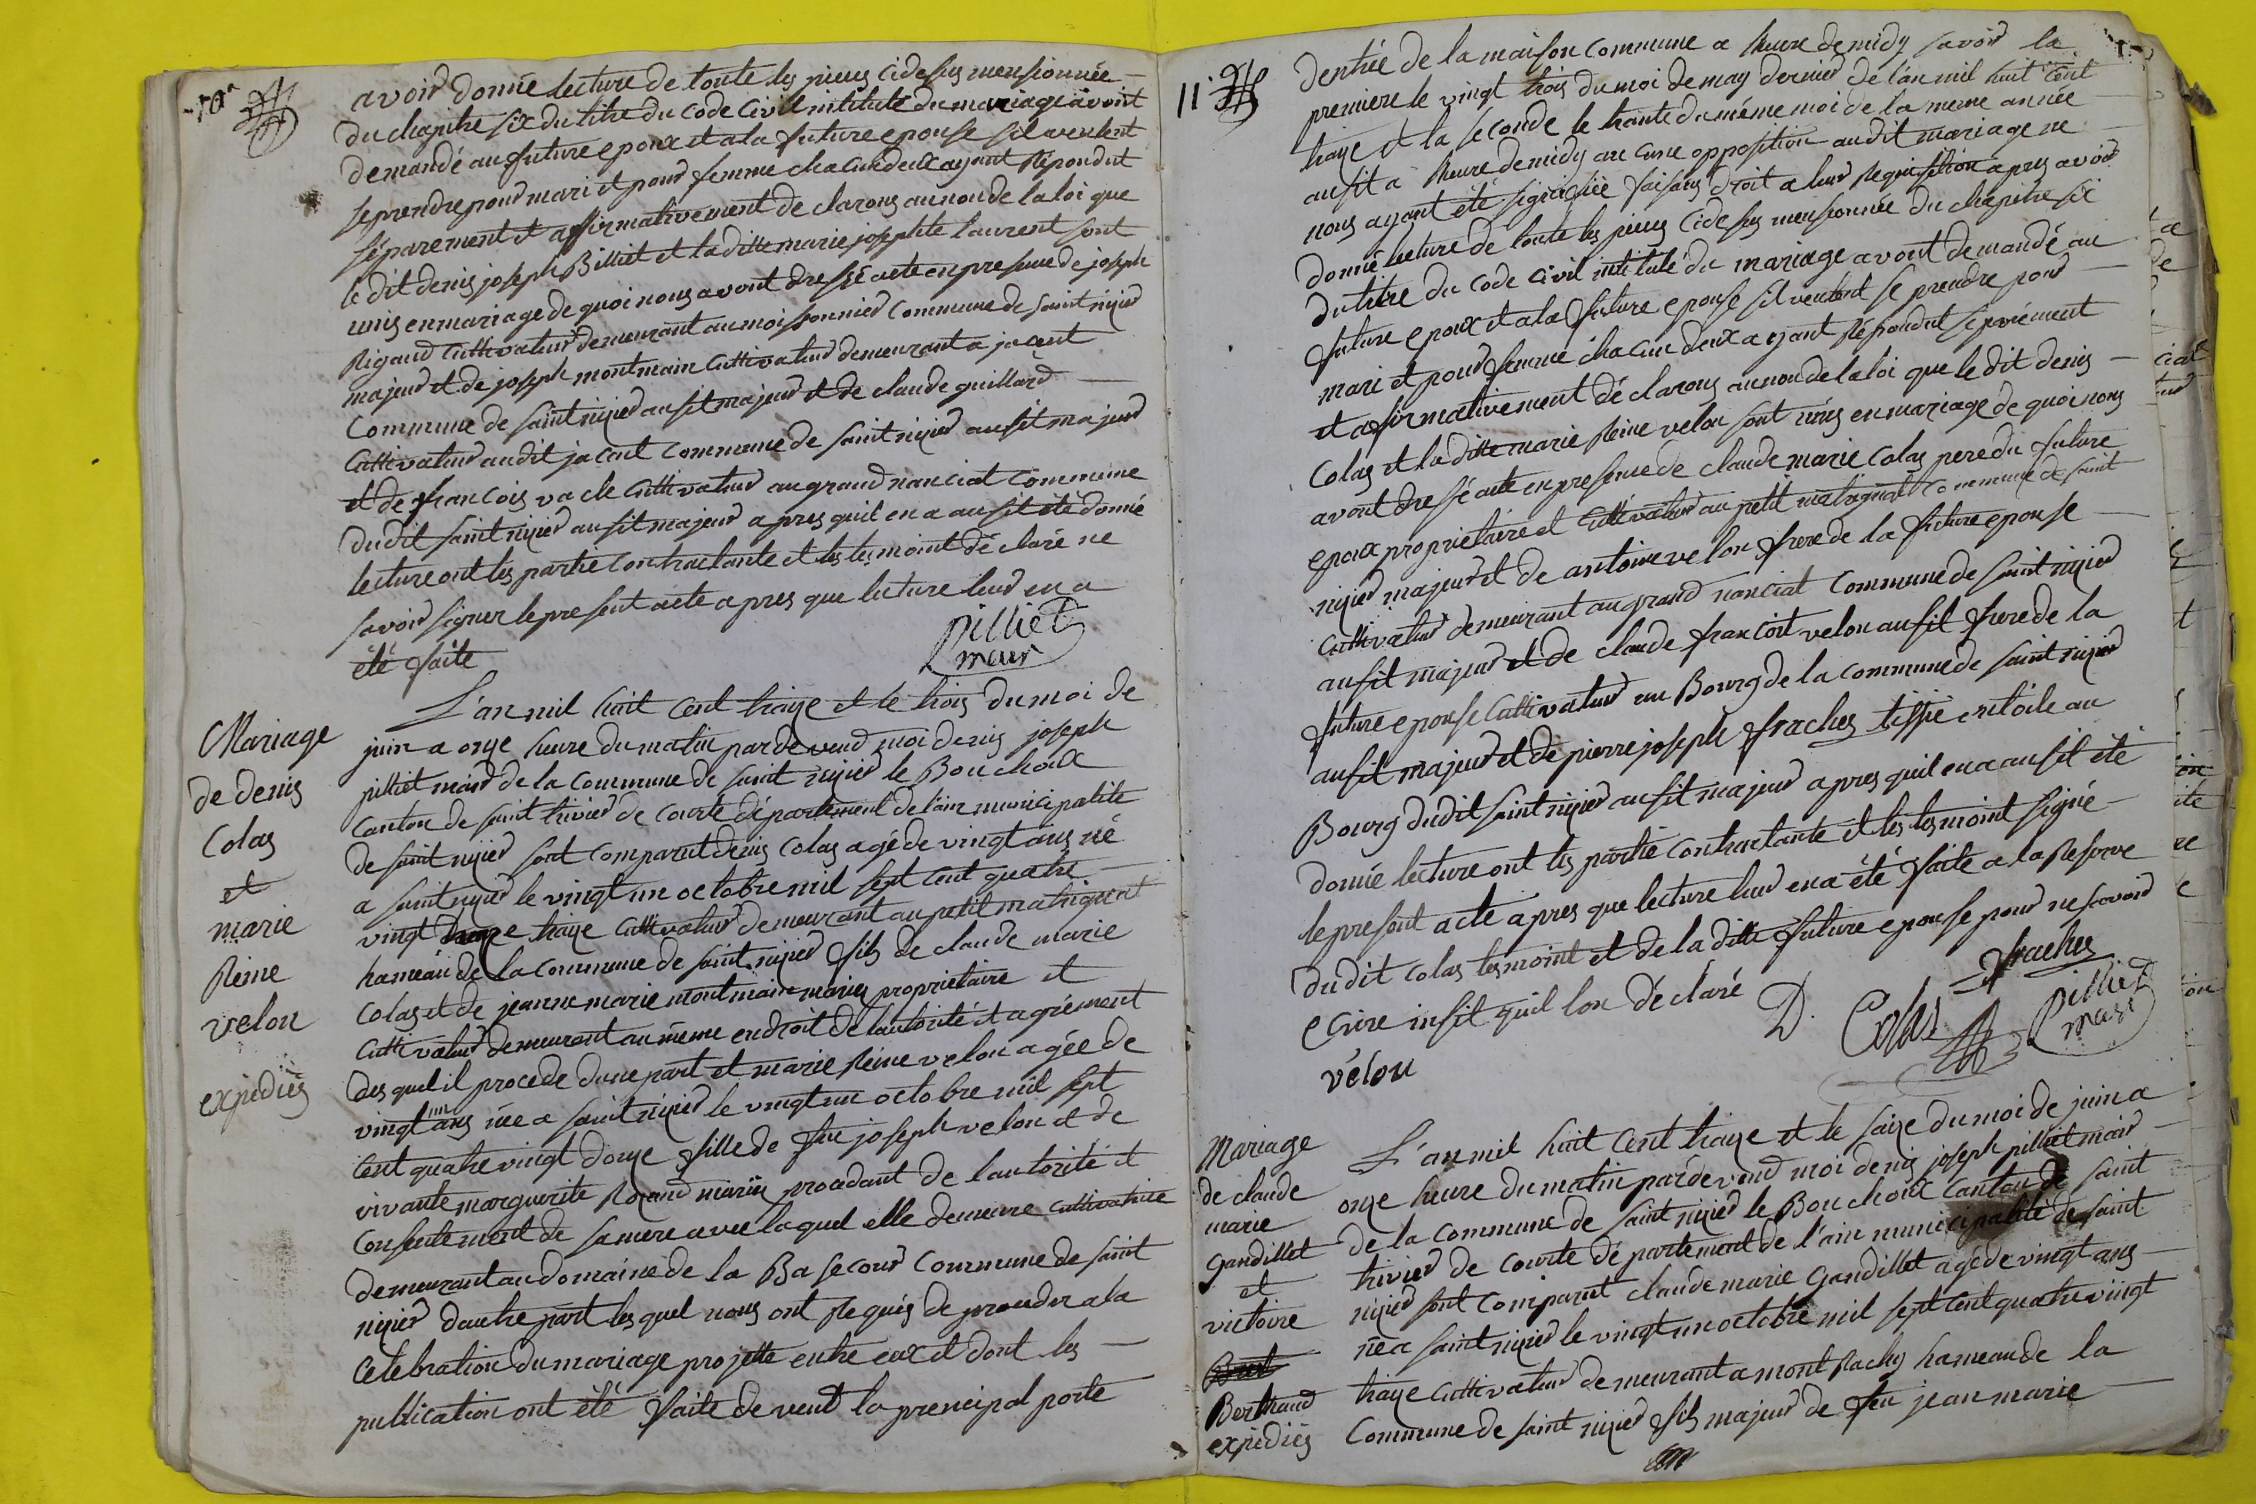 10e
avoir donnée lecture de toute les pieces cidesus mensionnée
du chapitre six du titre du code civil intitulé du mariage avont
demandé au future epoux et a la future epouse sil veulent
se prendre pour mari et pour femme chacun deux ayant repondut
séparement et affirmativement declarons au non de la loi que
le dit denis joseph Billiet et la ditte marie josephte laurent sont
unis en mariage de quoi nous avont dressé acte en presense de joseph
Rigaud cuttivateur demeurant au moissonnier commune de saint nizier
majeur et de joseph montmain cuttivateur demeurant a jacent
Commune de saint nizier ausit majeur et de claude guillard
Cuttivateur audit jacent commune de saint nizier ausit majeur
et de francois vacle cuttivateur au grand nanciat commune
dudit saint nizier ausit majeur apres quil en a ausit été donné
lecture ont les partie contractante et les tesmoint déclaré ne
savoir signer le present acte apres que lecture leur en a
été faite
pilliet
mair
Mariage
de denis
Colas
et
marie
Reine
velon
expédiés
L'an mil huit cent traize et le trois du moi de
juin a onze heure du matin pardevend moi denis joseph
pilliet mair de la commune de saint nizier le Bouchoux
canton de saint trivier de courte département de l'ain municipalite
de saint nizier sont comparut denis colas agé de vingt ans né
a saint nizier le vingt un octobre mil sept cent quatre
vingt traize cuttivateur demeurant au petit matrignat
hameau de la commune de saint nizier fils de claude marie
Colas et de jeanne marie montmain mariés proprietaire et
cuttivateur demeurant au même endroit de lautorité et agrément
des quel il procede dune part et marie Reine velon agée de
vingt ans née a saint nizier le vingt un octobre mil sept
Cent quatre vingt douze fille de feu joseph velon et de
vivante marguerite Roland mariés procedant de l'autorité et
consentement de sa mere avec laquel elle demeure cuttivatrice
demeurant au domaine de la Basecour commune de saint
nizier dautre part les quel nous ont requis de proceder a la
Celebration du mariage projette entre eux et dont les
publication ont été faite devent la principal porte
11e
dentrée de la maison commune a heure de midy savoir la
premiere le vingt trois du moi de may dernier de l'an mil huit cent
traize et la seconde le trante du même moi de la meme année
ausit a heure de midy aucune opposition audit mariage ne
nous ayant été signifiée faisans droit a leur requisition apres avoir
donnée lecture de toute les pieces cidesus mensionnée du chapitre six
du titre du code civil intitulé du mariage avont demandé au
future epoux et a la future epouse sil veulent se prendre pour
mari et pour femme chacun deux ayant répondut sepréement
et affirmativement déclarons au non de la loi que le dit denis
Colas et la ditte marie Reine velon sont unis en mariage de quoi nous
avont dressé acte en presense de claude marie colas pere du future
epoux proprietaire et cuttivateur au petit matrignat commune de saint
nizier majeur et de antoine velon frere de la future epouse
Cuttivateur demeurant au grand nanciat commune de saint nizier
ausit majeur et de claude francoit velon ausit frere de la
future epouse cuttivateur au Bourg de la commune de saint nizier
ausit majeur et de pierre joseph fraches tissié en toile au
Bourg dudit saint nizier ausit majeur apres quil en a ausit été
donnée lecture ont les partie contractante et les tesmoint signé
le present acte apres que lecture leur en a été faite a la Reserve
dudit colas tesmoint et de la ditte future epouse pour ne savoir
ecrire insit quil lon déclaré
fraches
D. Colas
pilliet
mair
vélon
Mariage
de claude
marie
Gandillet
et
victoire
Bertraud
expédiés
L'an mil huit cent traize et le saize du moi de juin a
onze heure du matin pardevend moi denis joseph pilliet mair
de la commune de saint nizier le Bouchoux canton de saint
trivier de courte département de l'ain municipalité de saint
nizier sont comparut claude marie Gandillet agé de vingt ans
né a saint nizier le vingt un octobre mil sept cent quatre vingt
traize cuttivateur demeurant a mont Rachy hameau de la
Commune de saint nizier fils majeur de feu jean marie